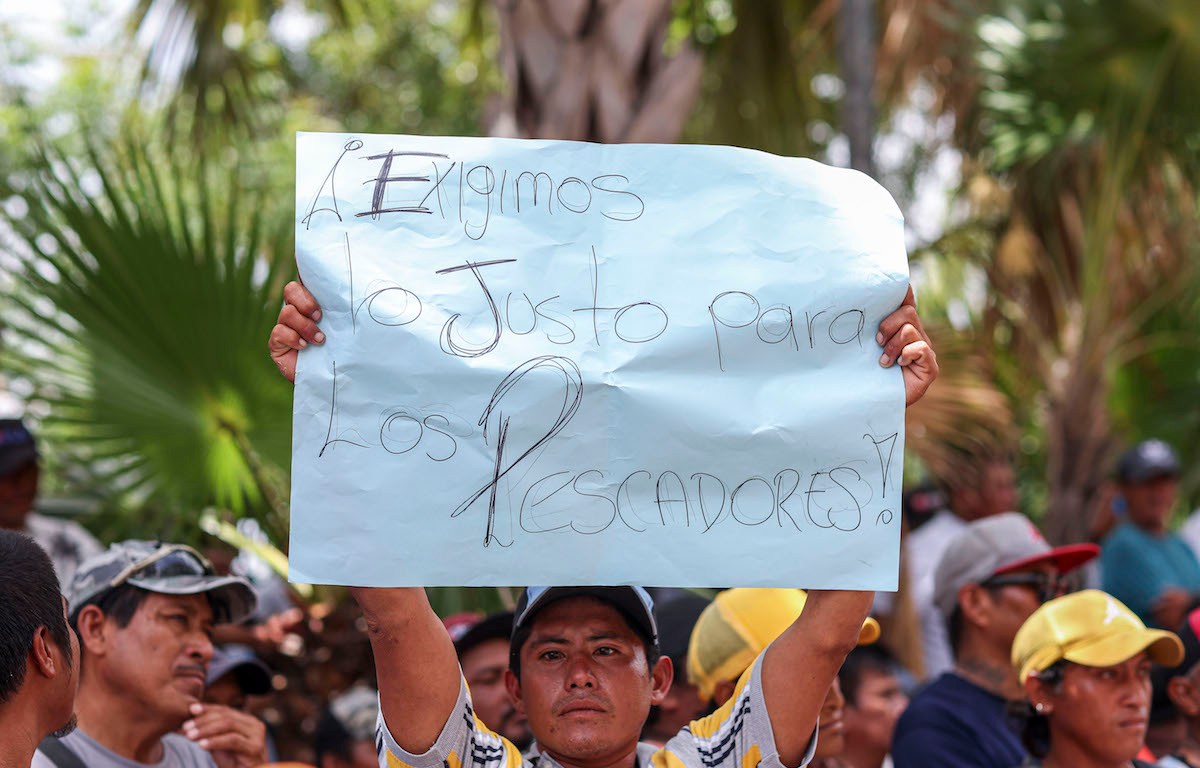 ¡Exigimos
lo Justo para
Los Pescadores!